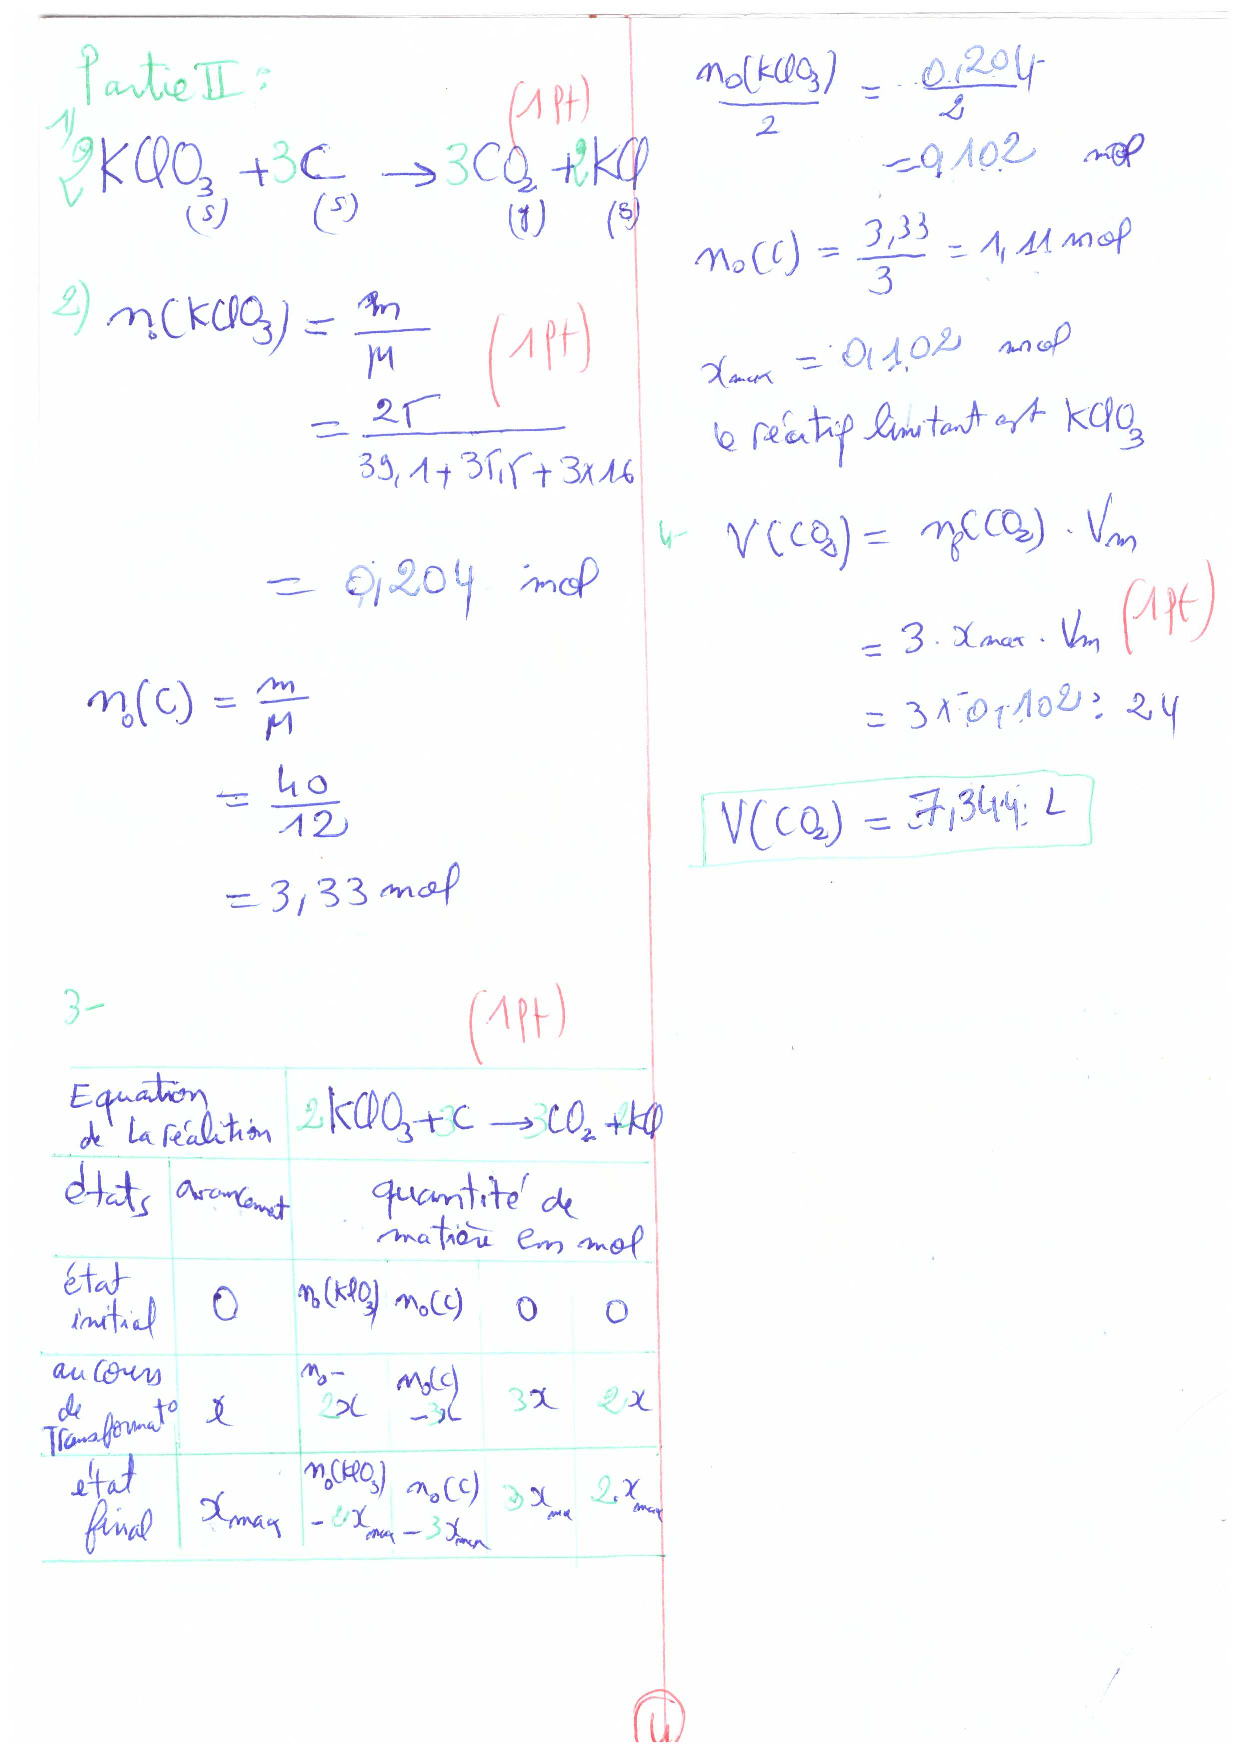 Partie II :
1)
2KClO3 + 3C → 3CO2 + 2KCl (1pt)
(s) (s) (g) (s)
2) n0(KClO3) = m/M (1pt)
= 25/(39,1 + 35,5 + 3x16)
= 0,204 mol
n0(C) = m/M
= 40/12
= 3,33 mol
3- (1pt)
Equation de la réalition 2KClO3 + 3C → 3CO2 + 2KCl
états avancement quantité de matière em mol
état initial 0 n0(KClO3) n0(C) 0 0
au cours de Transformat° x n0-2x n0(C)-3x 3x 2x
état final xmax n0(KClO3)-2xmax n0(C)-3xmax 3xmax 2.xmax
n0(KClO3)/2 = 0,204/2
= 0,102 mol
n0(C) = 3,33/3 = 1,11 mol
xmax = 0,102 mol
le réactif limitant est KClO3
4- V(CO2) = nf(CO2) . Vm
= 3 . xmax . Vm (1pt)
= 3 x 0,102 . 24
V(CO2) = 7,344 L
4